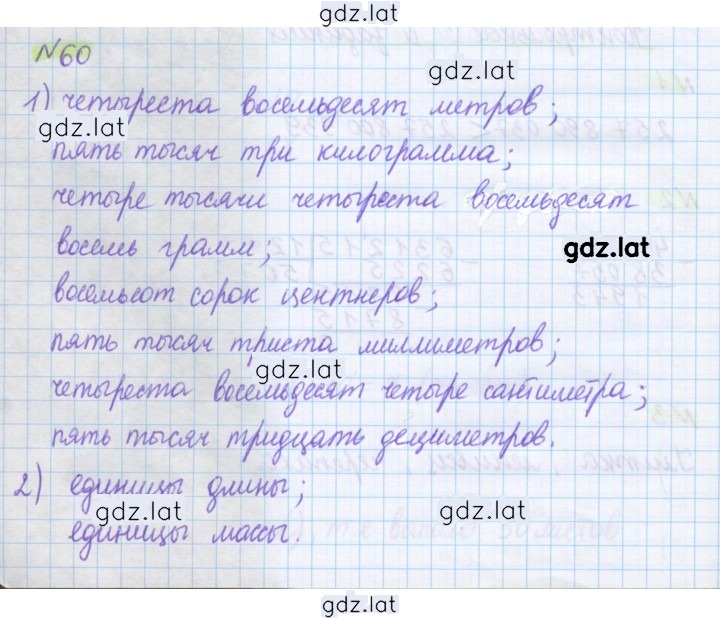 gdz.lat
№60
gdz.lat
1) четыреста восемьдесят метров;
gdz.lat
пять тысяч три килограмма;
четыре тысячи четыреста восемьдесят
восемь грамм;
gdz.lat
восемьсот сорок центнеров;
пять тысяч триста миллиметров;
gdz.lat
четыреста восемьдесят четыре сантиметра;
пять тысяч тридцать дециметров.
2) единицы длины;
gdz.lat gdz.lat
единицы массы.
gdz.lat